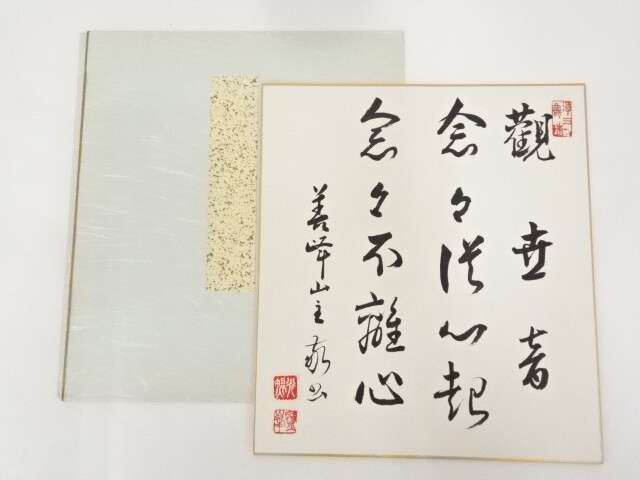 觀世音
念々従心起
念々不離心
善峰山主敬書